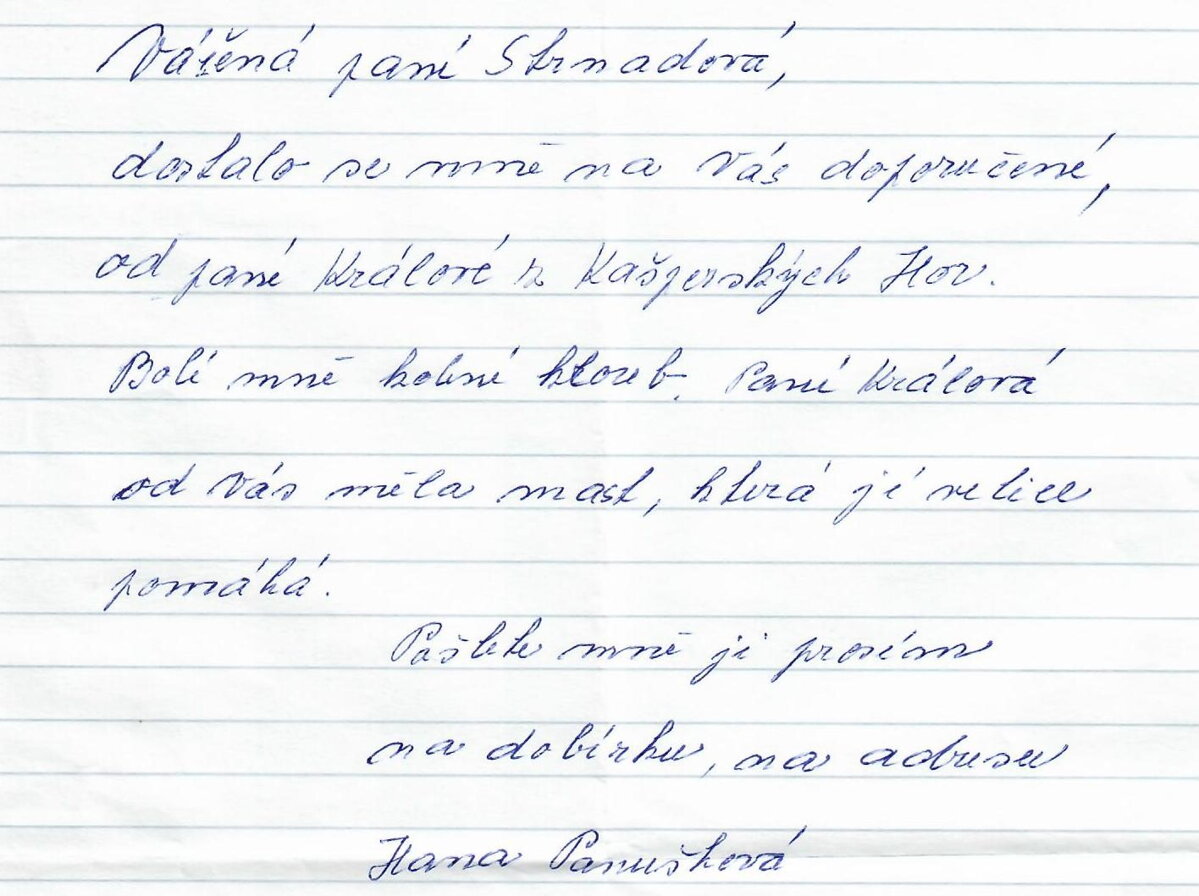 Vážená paní Strnadová,
dostalo se mně na Vás doporučené,
od paní Králové z Kašperských Hor.
Bolí mně kolení kloub. Paní Králová
od Vás měla mast, která jí velice
pomáhá.
Pošlete mně ji prosím
na dobírku, na adresu
Hana Panušková